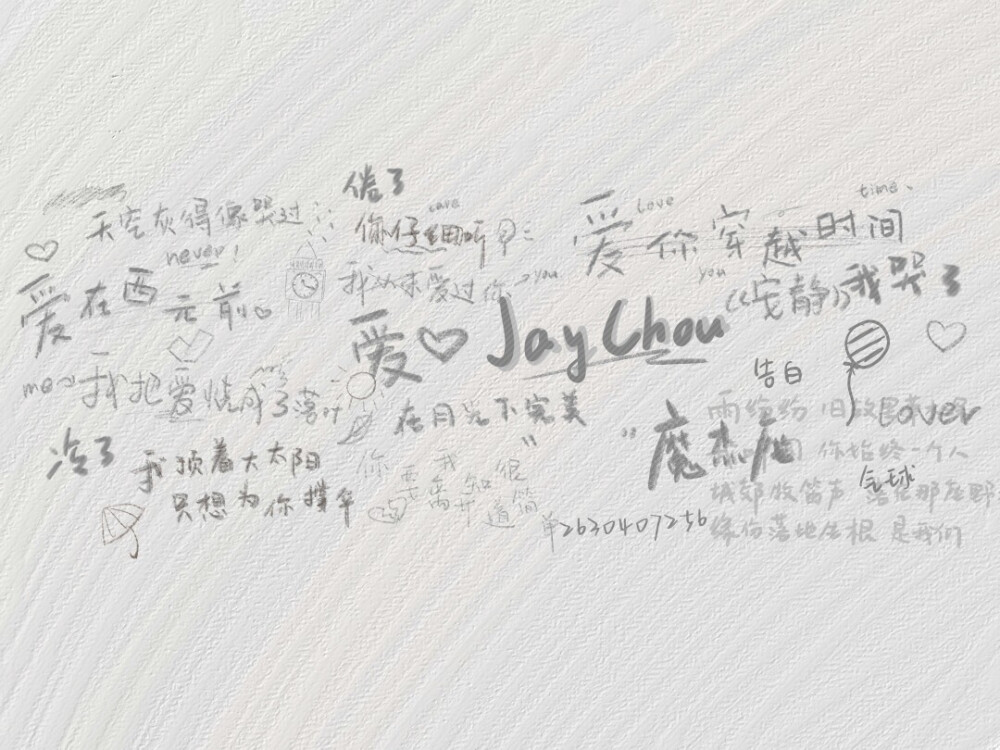 倦了
天空灰得像哭过
care
你仔细听
never!
我从未爱过你
you
love
time、
爱你穿越时间
you
《安静》我哭了
爱在西元前
爱 Jay Chou
告白
me
我把爱烧成了落叶
在月光下完美
lover
"魔杰座
雨纷纷 旧故里草木深
你始终一个人
冷了
我顶着大太阳
只想为你撑伞
你要离开
我知道很简单
2630407256
气球
城郊牧笛声 落在那座野
缘份落地生根 是我们